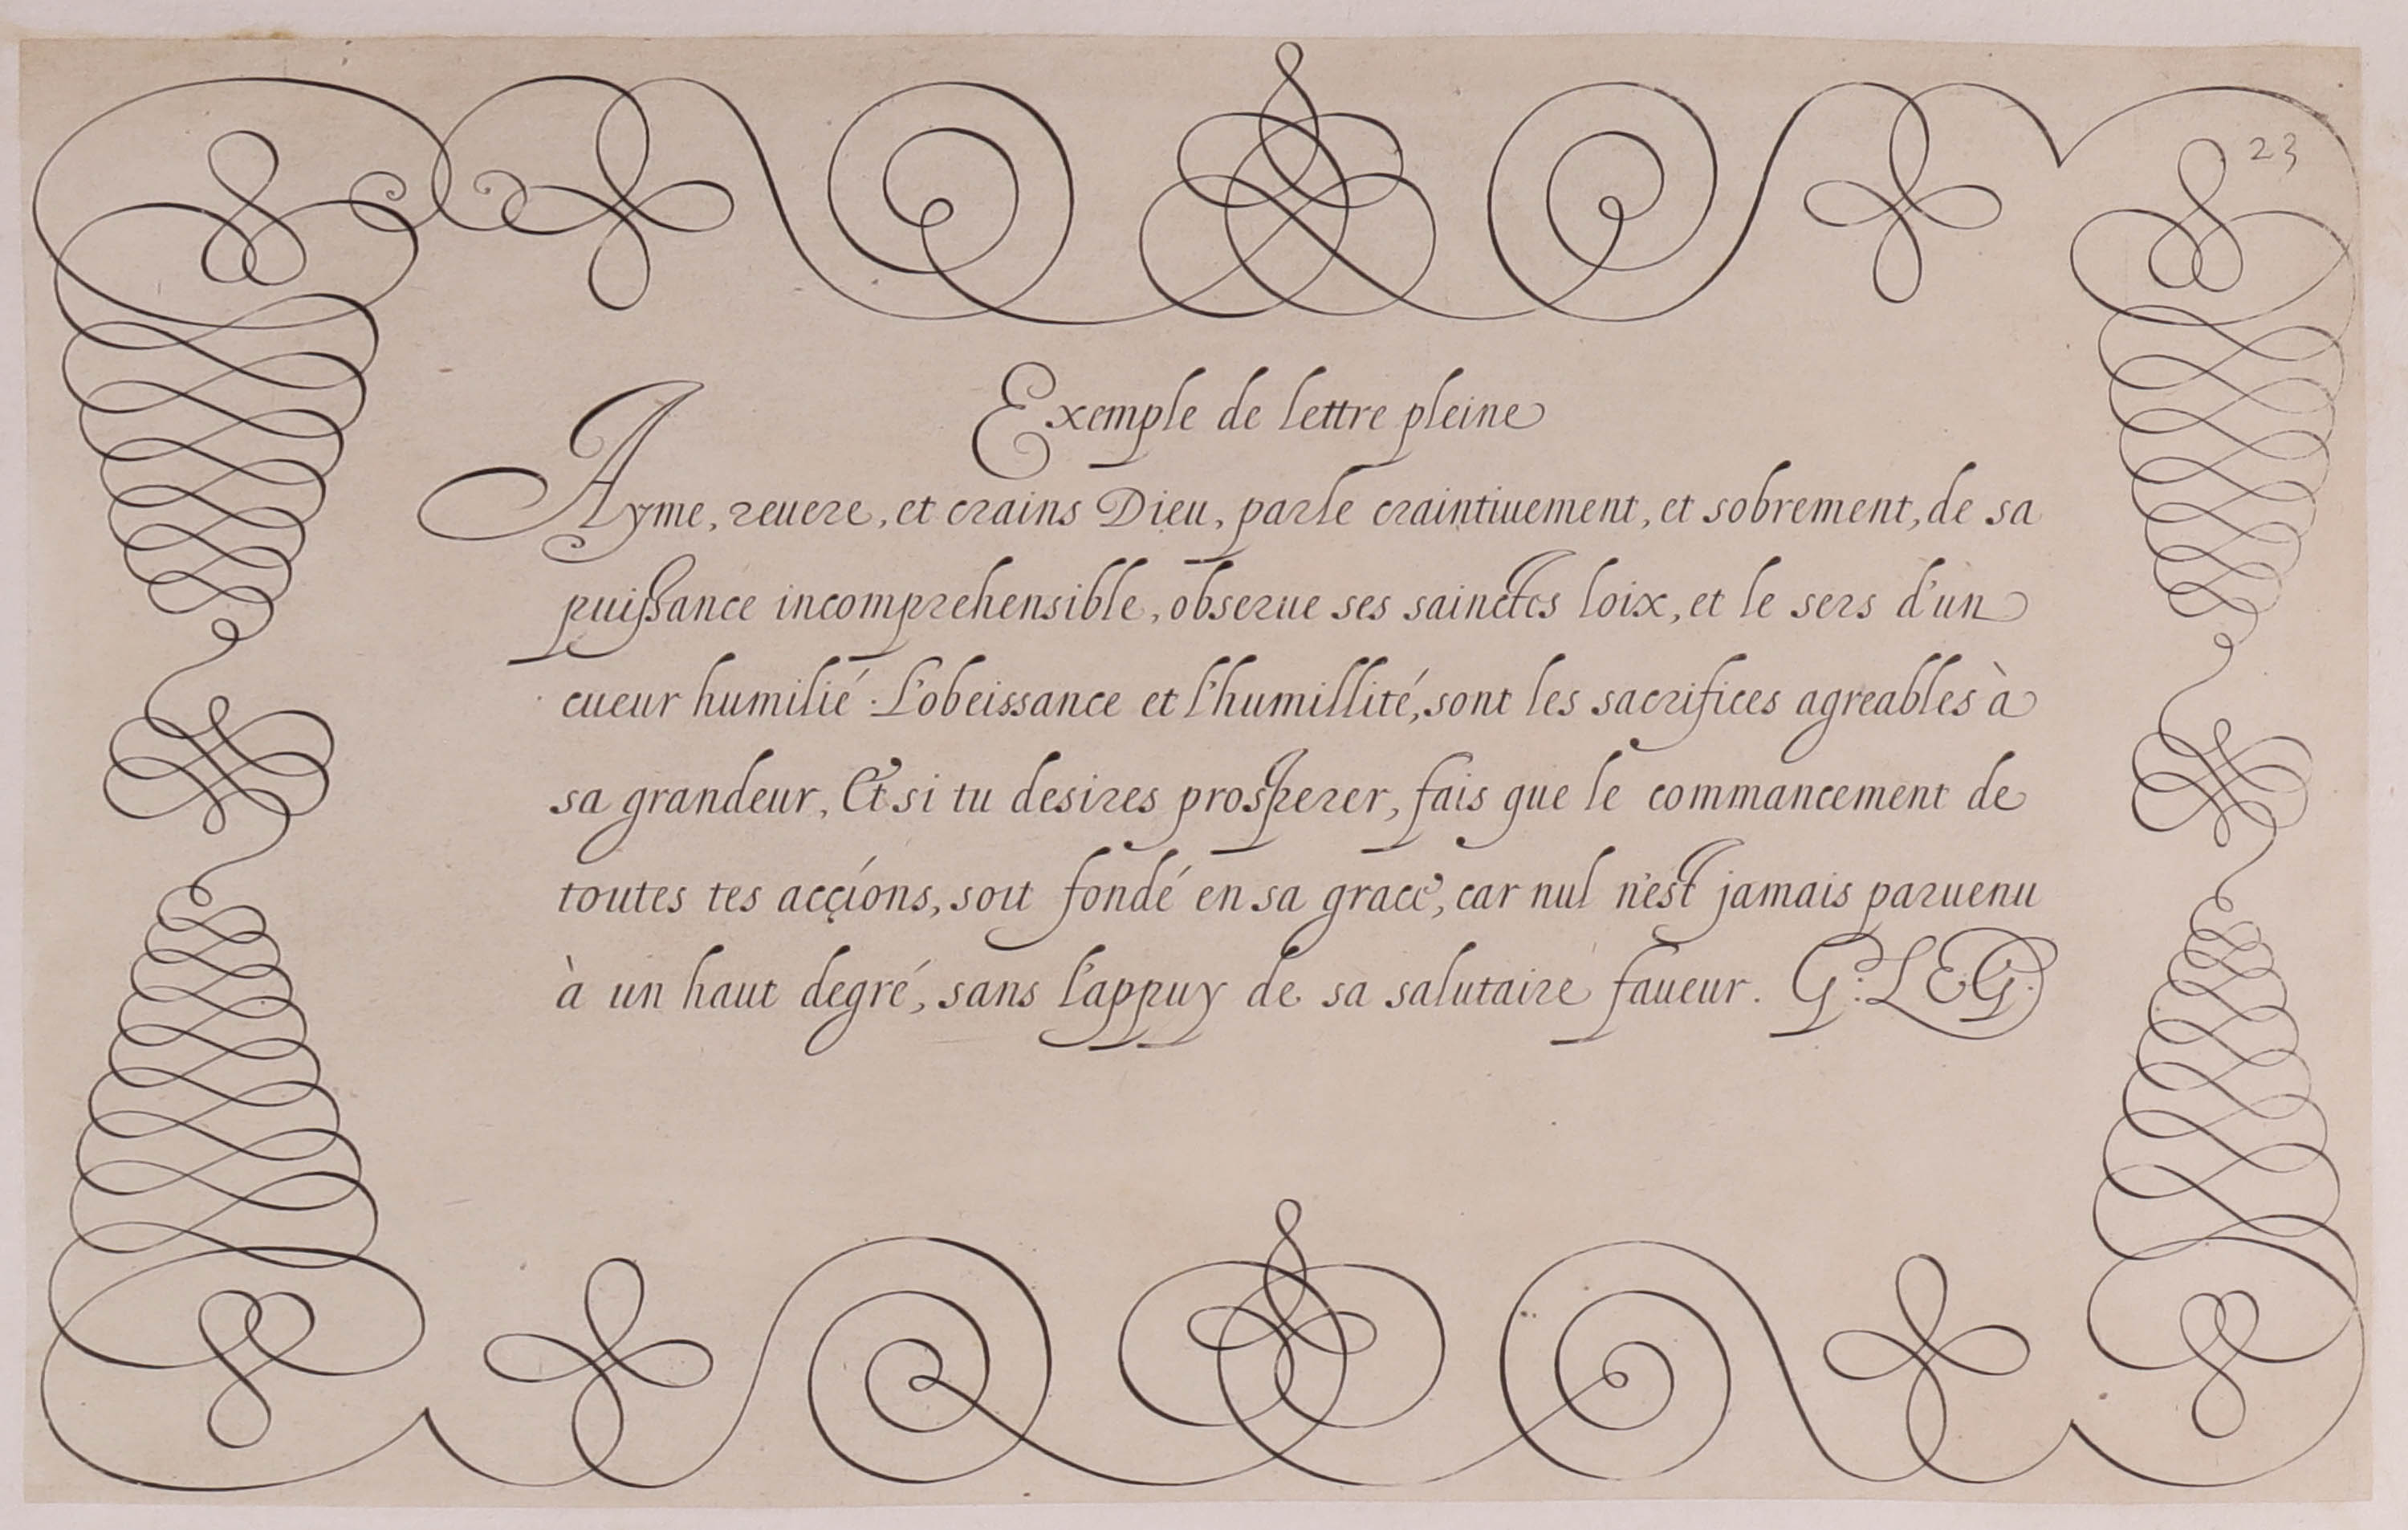 23
Exemple de lettre pleine
Ayme, reuere, et crains Dieu, parle craintiuement, et sobrement, de sa
puissance incomprehensible, obserue ses sainctes loix, et le sers d'un
cueur humilié. L'obeissance et l'humillité, sont les sacrifices agreables à
sa grandeur, Et si tu desires prosperer, fais que le commancement de
toutes tes acçions, soit fondé en sa grace, car nul n'est jamais paruenu
à un haut degré, sans l'appuy de sa salutaire faueur. G: L E G: